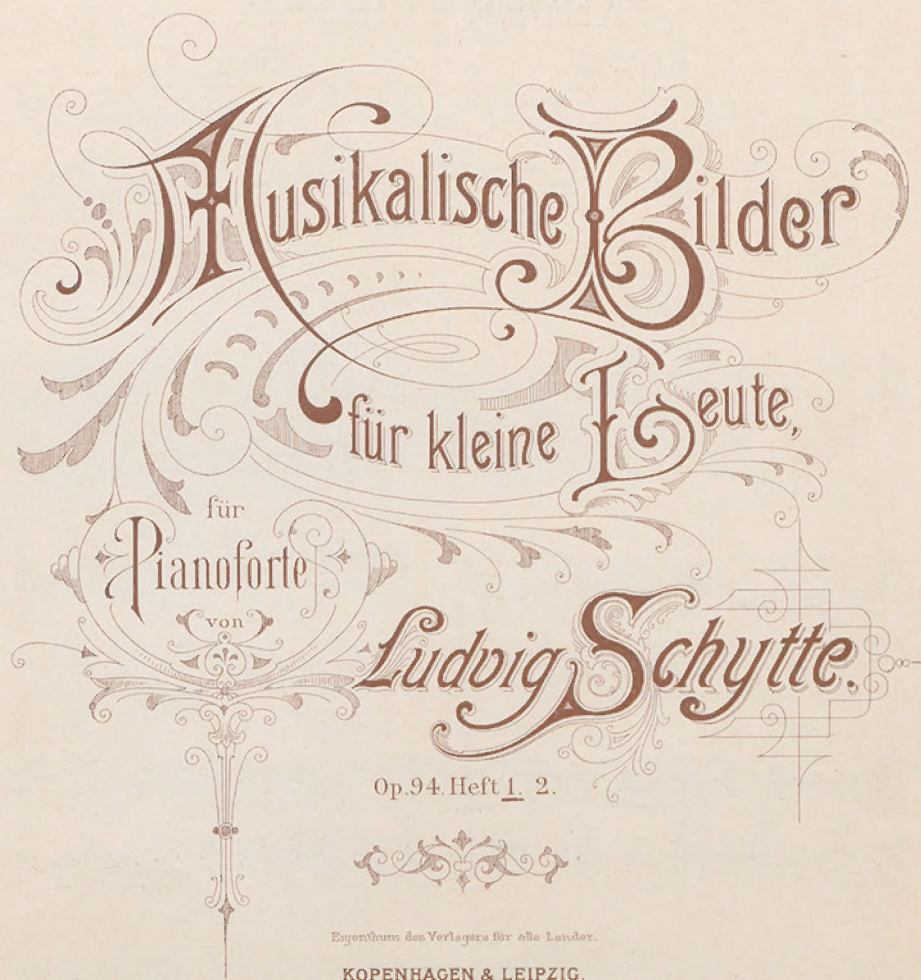 Musikalische Bilder
für kleine Leute,
für
Pianoforte
von
Ludvig Schytte.
Op. 94. Heft 1. 2.
Eigenthum des Verlegers für alle Länder.
KOPENHAGEN & LEIPZIG.